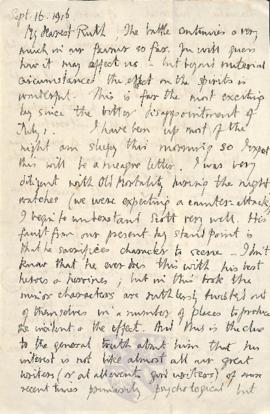 Sept. 16. 1916
My dearest Ruth The battle continues very
much in our favour so far. You will guess
how it may affect us – but beyond material
circumstances the effect on the spirits is
wonderful. This is far the most exciting
day since the bitter disappointment of
July 1. I have been up most of the
night am sleepy this morning so I expect
this will be a meagre letter. I was very
diligent with Old Mortality during the night
watches (we were expecting a counter-attack)
I begin to understand Scott very well. His
fault from our present day stand point is
that he sacrifices character to scene – I don't
know that he ever does this with his best
heroes & heroines; but in this book the
minor characters are ruthlessly twisted out
of themselves in a number of places to produce
the incident or the effect. And this is the clue
to the general truth about him that his
interest is not like almost all our great
writers (or at all events our writers) of more
recent times primarily psychological but